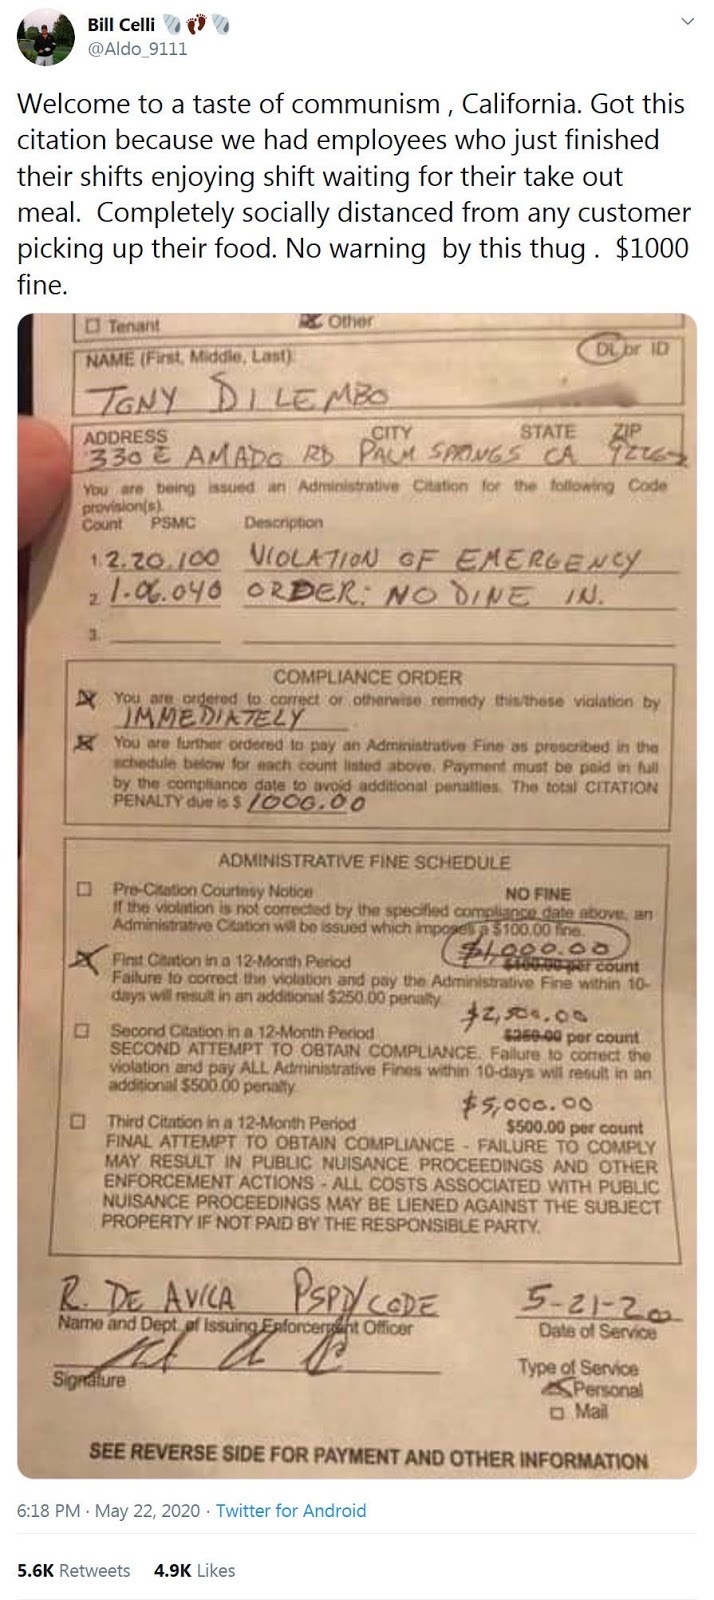 Bill Celli
@Aldo_9111
Welcome to a taste of communism , California. Got this
citation because we had employees who just finished
their shifts enjoying shift waiting for their take out
meal. Completely socially distanced from any customer
picking up their food. No warning by this thug . $1000
fine.
Tenant Other
NAME (First, Middle, Last) DL or ID
TONY DILEMBO
ADDRESS CITY STATE ZIP
330 E AMADO RD PALM SPRINGS CA
You are being issued an Administrative Citation for the following Code
provision(s).
Count PSMC Description
1. 2.20.100 VIOLATION OF EMERGENCY
2. 1.06.040 ORDER: NO DINE IN.
3.
COMPLIANCE ORDER
You are ordered to correct or otherwise remedy this/these violation by
IMMEDIATELY
You are further ordered to pay an Administrative Fine as prescribed in the
schedule below for each count listed above. Payment must be paid in full
by the compliance date to avoid additional penalties. The total CITATION
PENALTY due is $ 1000.00
ADMINISTRATIVE FINE SCHEDULE
Pre-Citation Courtesy Notice NO FINE
If the violation is not corrected by the specified compliance date above, an
Administrative Citation will be issued which imposes a $100.00 fine.
$1,000.00
First Citation in a 12-Month Period $100.00 per count
Failure to correct the violation and pay the Administrative Fine within 10-
days will result in an additional $250.00 penalty
$2,500.00
Second Citation in a 12-Month Period $250.00 per count
SECOND ATTEMPT TO OBTAIN COMPLIANCE. Failure to correct the
violation and pay ALL Administrative Fines within 10-days will result in an
additional $500.00 penalty.
$5,000.00
Third Citation in a 12-Month Period $500.00 per count
FINAL ATTEMPT TO OBTAIN COMPLIANCE - FAILURE TO COMPLY
MAY RESULT IN PUBLIC NUISANCE PROCEEDINGS AND OTHER
ENFORCEMENT ACTIONS - ALL COSTS ASSOCIATED WITH PUBLIC
NUISANCE PROCEEDINGS MAY BE LIENED AGAINST THE SUBJECT
PROPERTY IF NOT PAID BY THE RESPONSIBLE PARTY.
R. DE AVILA PSPD/CODE 5-21-20
Name and Dept. of Issuing Enforcement Officer Date of Service
Signature Type of Service
Personal
Mail
SEE REVERSE SIDE FOR PAYMENT AND OTHER INFORMATION
6:18 PM · May 22, 2020 · Twitter for Android
5.6K Retweets 4.9K Likes